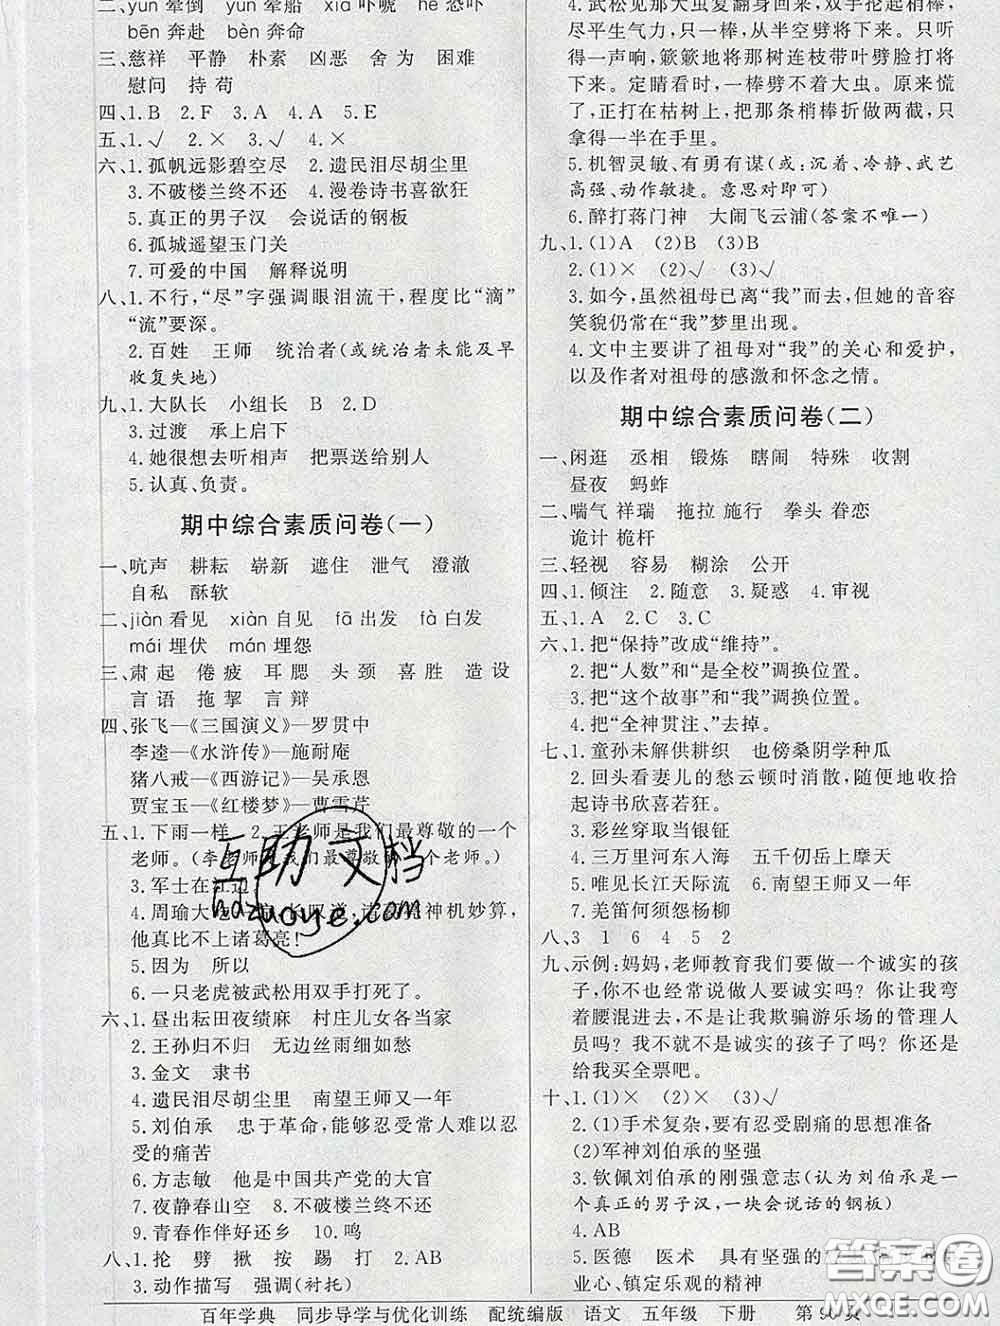 二、yūn 晕倒 yùn 晕船 xià 吓唬 hè 恐吓
bēn 奔赴 bèn 奔命
三、慈祥 平静 朴素 凶恶 舍 为 困难
慰问 持 苟
四、1.B 2.F 3.A 4.A 5.E
五、1.√ 2.× 3.√ 4.×
六、1.孤帆远影碧空尽 2.遗民泪尽胡尘里
3.不破楼兰终不还 4.漫卷诗书喜欲狂
5.真正的男子汉 会说话的钢板
6.孤城遥望玉门关
7.可爱的中国 解释说明
八、1.不行,“尽”字强调眼泪流干,程度比“滴”
“流”要深。
2.百姓 王师 统治者(或统治者未能及早
收复失地)
九、1.大队长 小组长 B 2.D
3.过渡 承上启下
4.她很想去听相声 把票送给别人
5.认真、负责。
期中综合素质问卷(一)
一、吭声 耕耘 崭新 遮住 泄气 澄澈
自私 酥软
二、jiàn 看见 xiàn 自见 fā 出发 fà 白发
mái 埋伏 mán 埋怨
三、肃 起 倦 疲 耳 腮 头 颈 喜 胜 造 设
言 语 拖 拏 言 辩
四、张飞—《三国演义》—罗贯中
李逵—《水浒传》—施耐庵
猪八戒—《西游记》—吴承恩
贾宝玉—《红楼梦》—曹雪芹
五、1.下雨一样 2.王老师是我们最尊敬的一个
老师。(李老师是我们最尊敬的一个老师。)
3.军士在江边
4.周瑜大吃一惊,长叹道,诸葛亮神机妙算,
他真比不上诸葛亮!
5.因为 所以
6.一只老虎被武松用双手打死了。
六、1.昼出耘田夜绩麻 村庄儿女各当家
2.王孙归不归 无边丝雨细如愁
3.金文 隶书
4.遗民泪尽胡尘里 南望王师又一年
5.刘伯承 忠于革命,能够忍受常人难以忍
受的痛苦
6.方志敏 他是中国共产党的大官
7.夜静春山空 8.不破楼兰终不还
9.青春作伴好还乡 10.鸣
八、1.抡 劈 揪 按 踢 打 2.AB
3.动作描写 强调(衬托)
4.武松见那大虫复翻身回来,双手抡起梢棒,
尽平生气力,只一棒,从半空劈将下来。只听
得一声响,簌簌地将那树连枝带叶劈脸打将
下来。定睛看时,一棒劈不着大虫。原来慌
了,正打在枯树上,把那条梢棒折做两截,只
拿得一半在手里。
5.机智灵敏、有勇有谋(或:沉着、冷静、武艺
高强、动作敏捷。意思对即可)
6.醉打蒋门神 大闹飞云浦(答案不唯一)
九、1.(1)A (2)B (3)B
2.(1)× (2)√ (3)√
3.如今,虽然祖母已离“我”而去,但她的音容
笑貌仍常在“我”梦里出现。
4.文中主要讲了祖母对“我”的关心和爱护,
以及作者对祖母的感激和怀念之情。
期中综合素质问卷(二)
一、闲逛 丞相 锻炼 瞎闹 特殊 收割
昼夜 蚂蚱
二、喘气 祥瑞 拖拉 施行 拳头 眷恋
诡计 桅杆
三、轻视 容易 糊涂 公开
四、1.倾注 2.随意 3.疑惑 4.审视
五、1.A 2.C 3.C
六、1.把“保持”改成“维持”。
2.把“人数”和“是全校”调换位置。
3.把“这个故事”和“我”调换位置。
4.把“全神贯注、”去掉。
七、1.童孙未解供耕织 也傍桑阴学种瓜
2.回头看妻儿的愁云顿时消散,随便地收
起诗书欣喜若狂。
3.彩丝穿取当银钲
4.三万里河东入海 五千仞岳上摩天
5.唯见长江天际流 6.南望王师又一年
7.羌笛何须怨杨柳
八、3 1 6 4 5 2
九、示例:妈妈,老师教育我们要做一个诚实的孩
子,你不也是经常说做人要诚实吗?你让我弯
着腰混进去,不是让我欺骗游乐场的管理人
员吗?我不就不是诚实的孩子了吗?你还是
给我买全票吧。
十、1.(1)× (2)× (3)√
2.(1)手术复杂,要有忍受剧痛的思想准备
(2)军神刘伯承的坚强
3.钦佩刘伯承的刚强意志(认为刘伯承是一
个真正的男子汉,一块会说话的钢板)
4.AB
5.医德 医术 具有坚强的
业心、镇定乐观的精神
百年学典 同步导学与优化训练 配统编版 语文 五年级 下册 第90页
互助文档
hdzuoye.com
答案圈
MXQE.COM